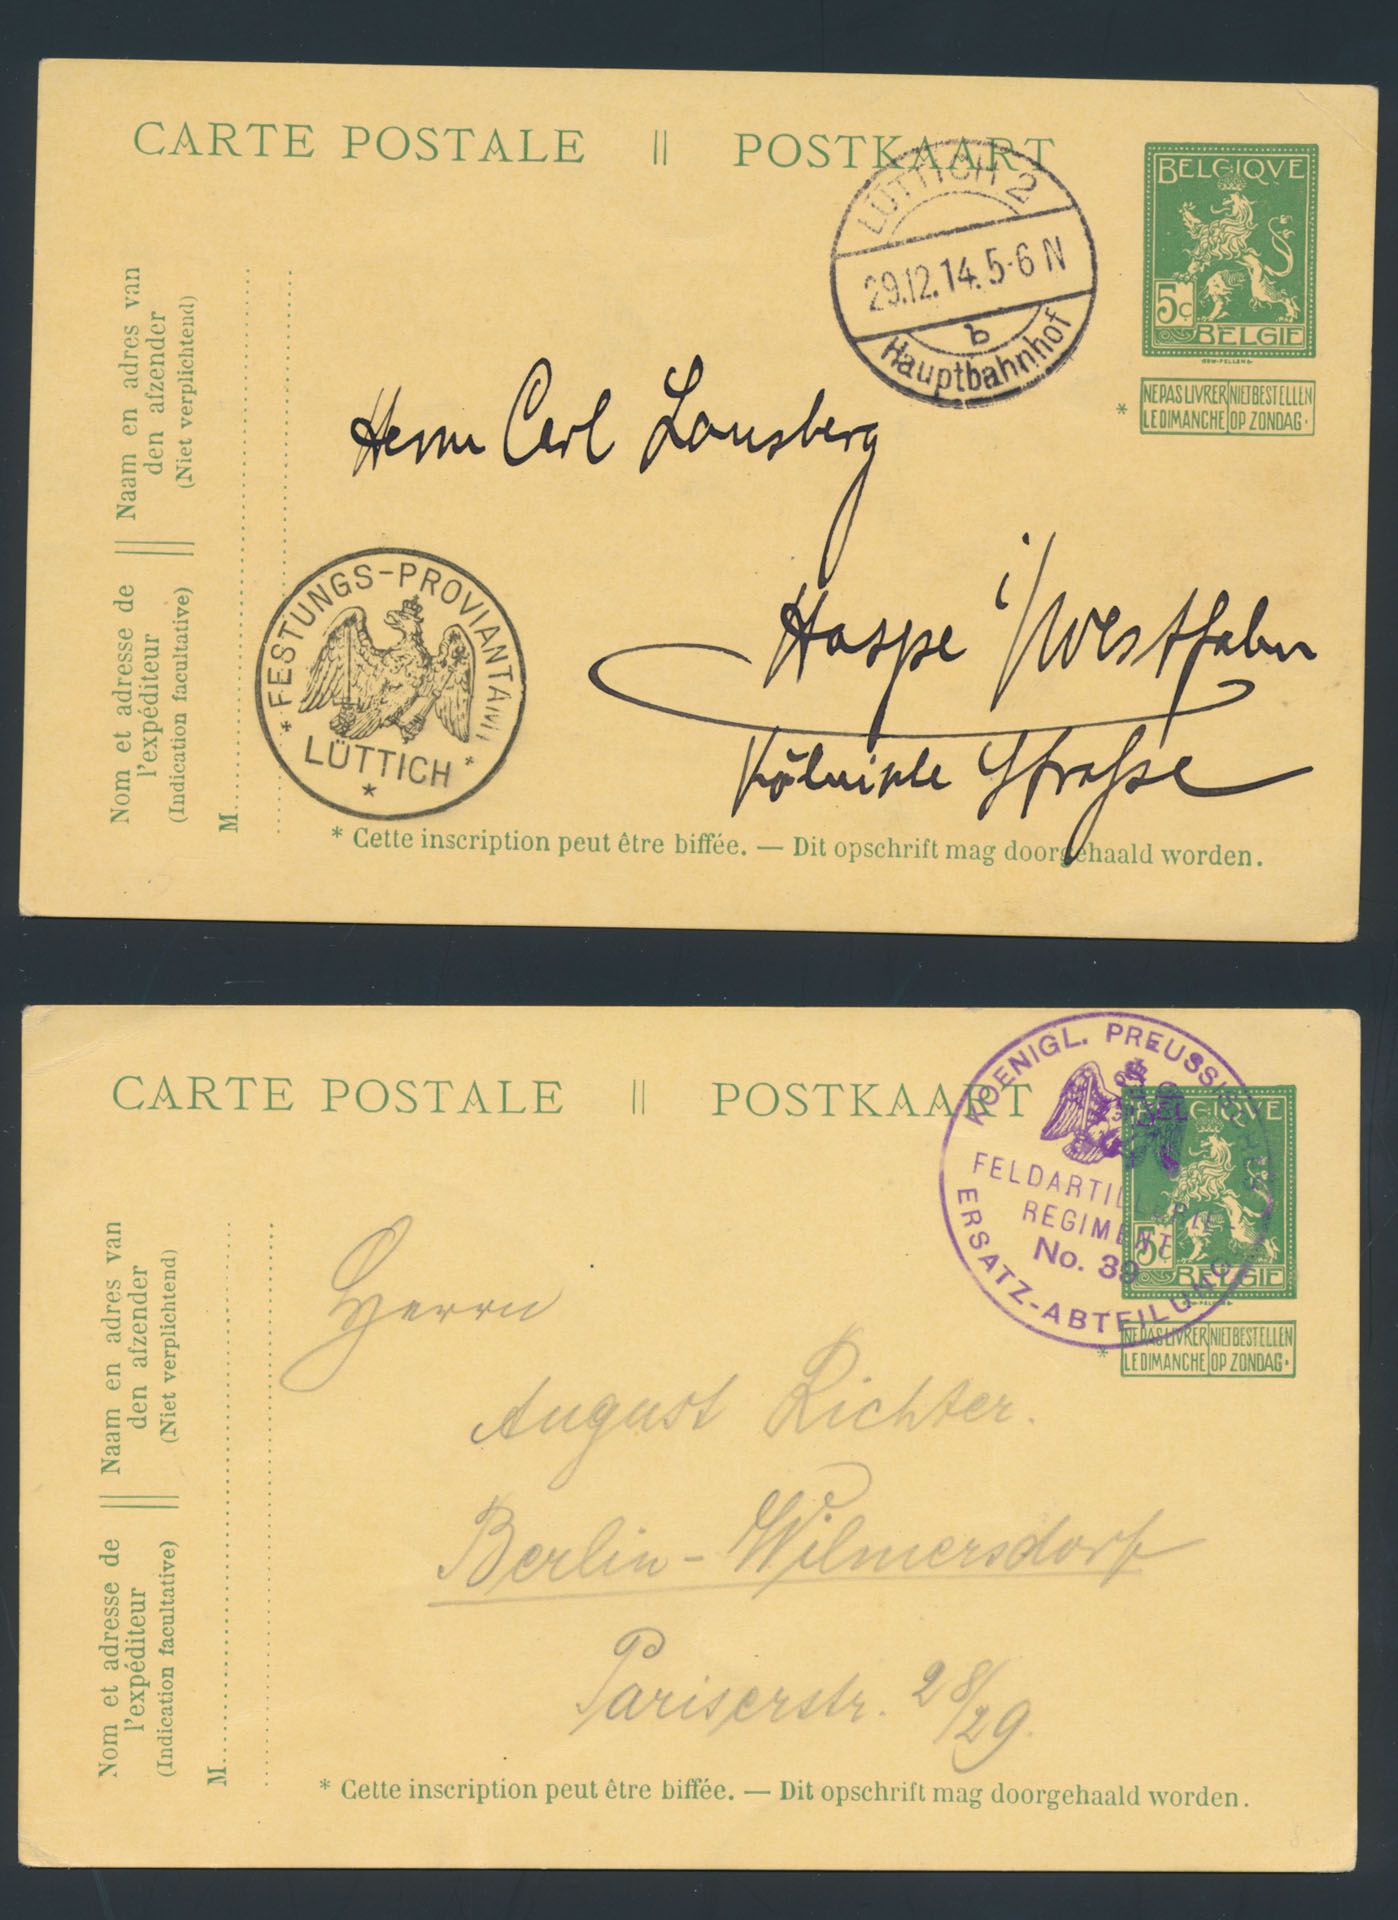 CARTE POSTALE || POSTKAART
BELGIQVE
5c
BELGIE
NE PAS LIVRER LE DIMANCHE
NIET BESTELLEN OP ZONDAG.
*
LÜTTICH 2
29.12.14. 5-6 N
b
Hauptbahnhof
Naam en adres van
den afzender
(Niet verplichtend)
Nom et adresse de
l'expéditeur
(Indication facultative)
M
Herrn Carl Lansberg
Haspe i/Westfalen
Kölnische Straße
* FESTUNGS-PROVIANTAMT *
LÜTTICH
*
* Cette inscription peut être biffée. — Dit opschrift mag doorgehaald worden.
CARTE POSTALE || POSTKAART
BELGIQVE
5c
BELGIE
NE PAS LIVRER LE DIMANCHE
NIET BESTELLEN OP ZONDAG.
*
KOENIGL. PREUSSISCHES
FELDARTILLERIE-
REGIMENT
No. 39
ERSATZ-ABTEILUNG
Naam en adres van
den afzender
(Niet verplichtend)
Nom et adresse de
l'expéditeur
(Indication facultative)
M
Herrn
August Richter.
Berlin-Wilmersdorf
Pariserstr. 28/29.
* Cette inscription peut être biffée. — Dit opschrift mag doorgehaald worden.